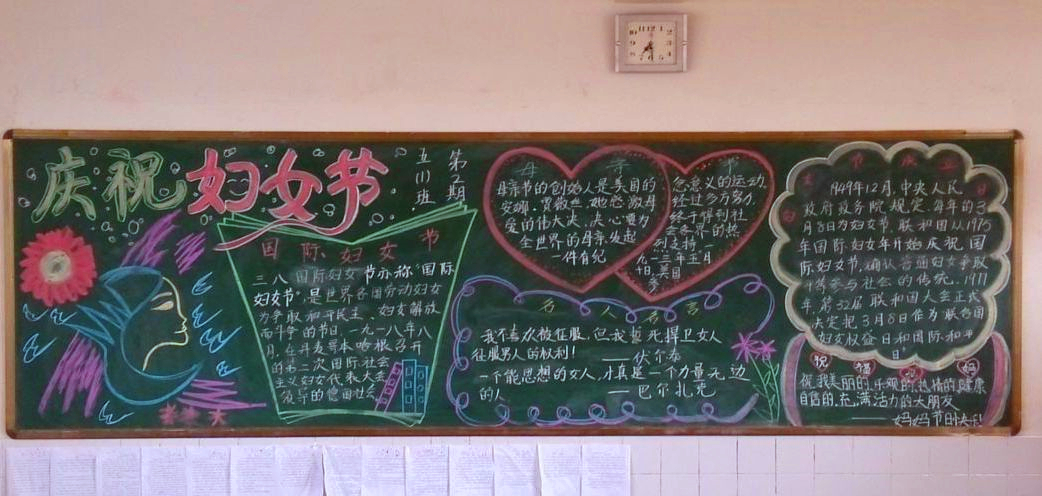 庆祝妇女节
五(1)班
第五期
国际妇女节
三八国际妇女节亦称"国际
妇女节",是世界各国劳动妇女
为争取和平民主、妇女解放
而斗争的节日,一九一八年八
月,在丹麦哥本哈根召开
的第二次国际社会
主义妇女代表大会
领导的德国社会
母亲节
母亲节的创始人是美国的
安娜·贾薇丝,她感激母
爱的伟大决,决心要为
全世界的母亲发起
一件有纪
念意义的运动,
经过多方努力,
终于得到社
会各界的热
列支持,一
九一三年五月
十日,美国
名人名言
我不喜欢被征服,但我誓死捍卫女人
征服男人的权利!
——伏尔泰
一个能思想的女人,才真是一个力量无边
的人
——巴尔扎克
1949年12月,中央人民
政府政务院规定每年的3
月8日为妇女节,联和国从1975
年国际妇女年开始庆祝国
际妇女节,确认普通妇女争取
平等参与社会的传统,1977
年,第32届联和国大会正式
决定把3月8日作为联合国
妇女权益日和国际和平
日
祝福妈妈
祝我美丽的,乐观的,热情的,健康
自信的,充满活力的大朋友
——妈妈节日快乐!